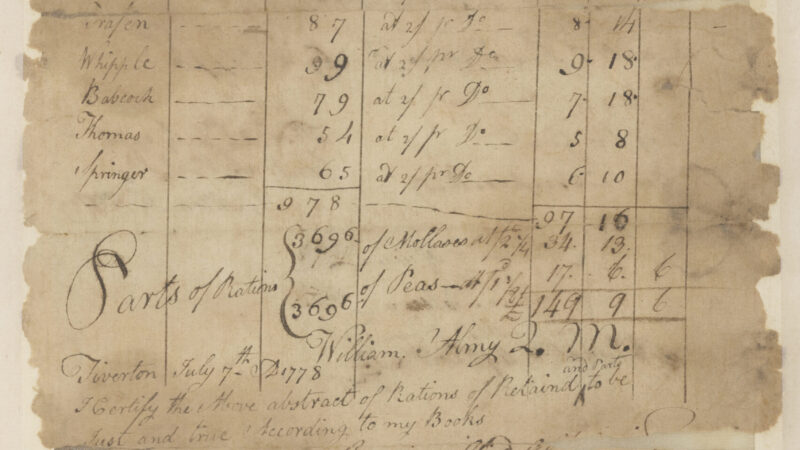 87 at 2/ pr Do — 8 14
Whipple — — — — 99 at 2/ pr Do — 9 18
Babcock — — — — 79 at 2/ pr Do — 7 18
Thomas — — — — 54 at 2/ pr Do — 5 8
Springer — — — 65 at 2/ pr Do — 6 10
978 97 16
3696 of Mollases at 34 13
Parts of Rations
3696 of Peas — at 17 6 6
149 9 6
William Almy Q. M.
Tiverton July 7th AD 1778
and Party
I Certify the Above abstract of Rations of Retaind to be
Just and true According to my Books